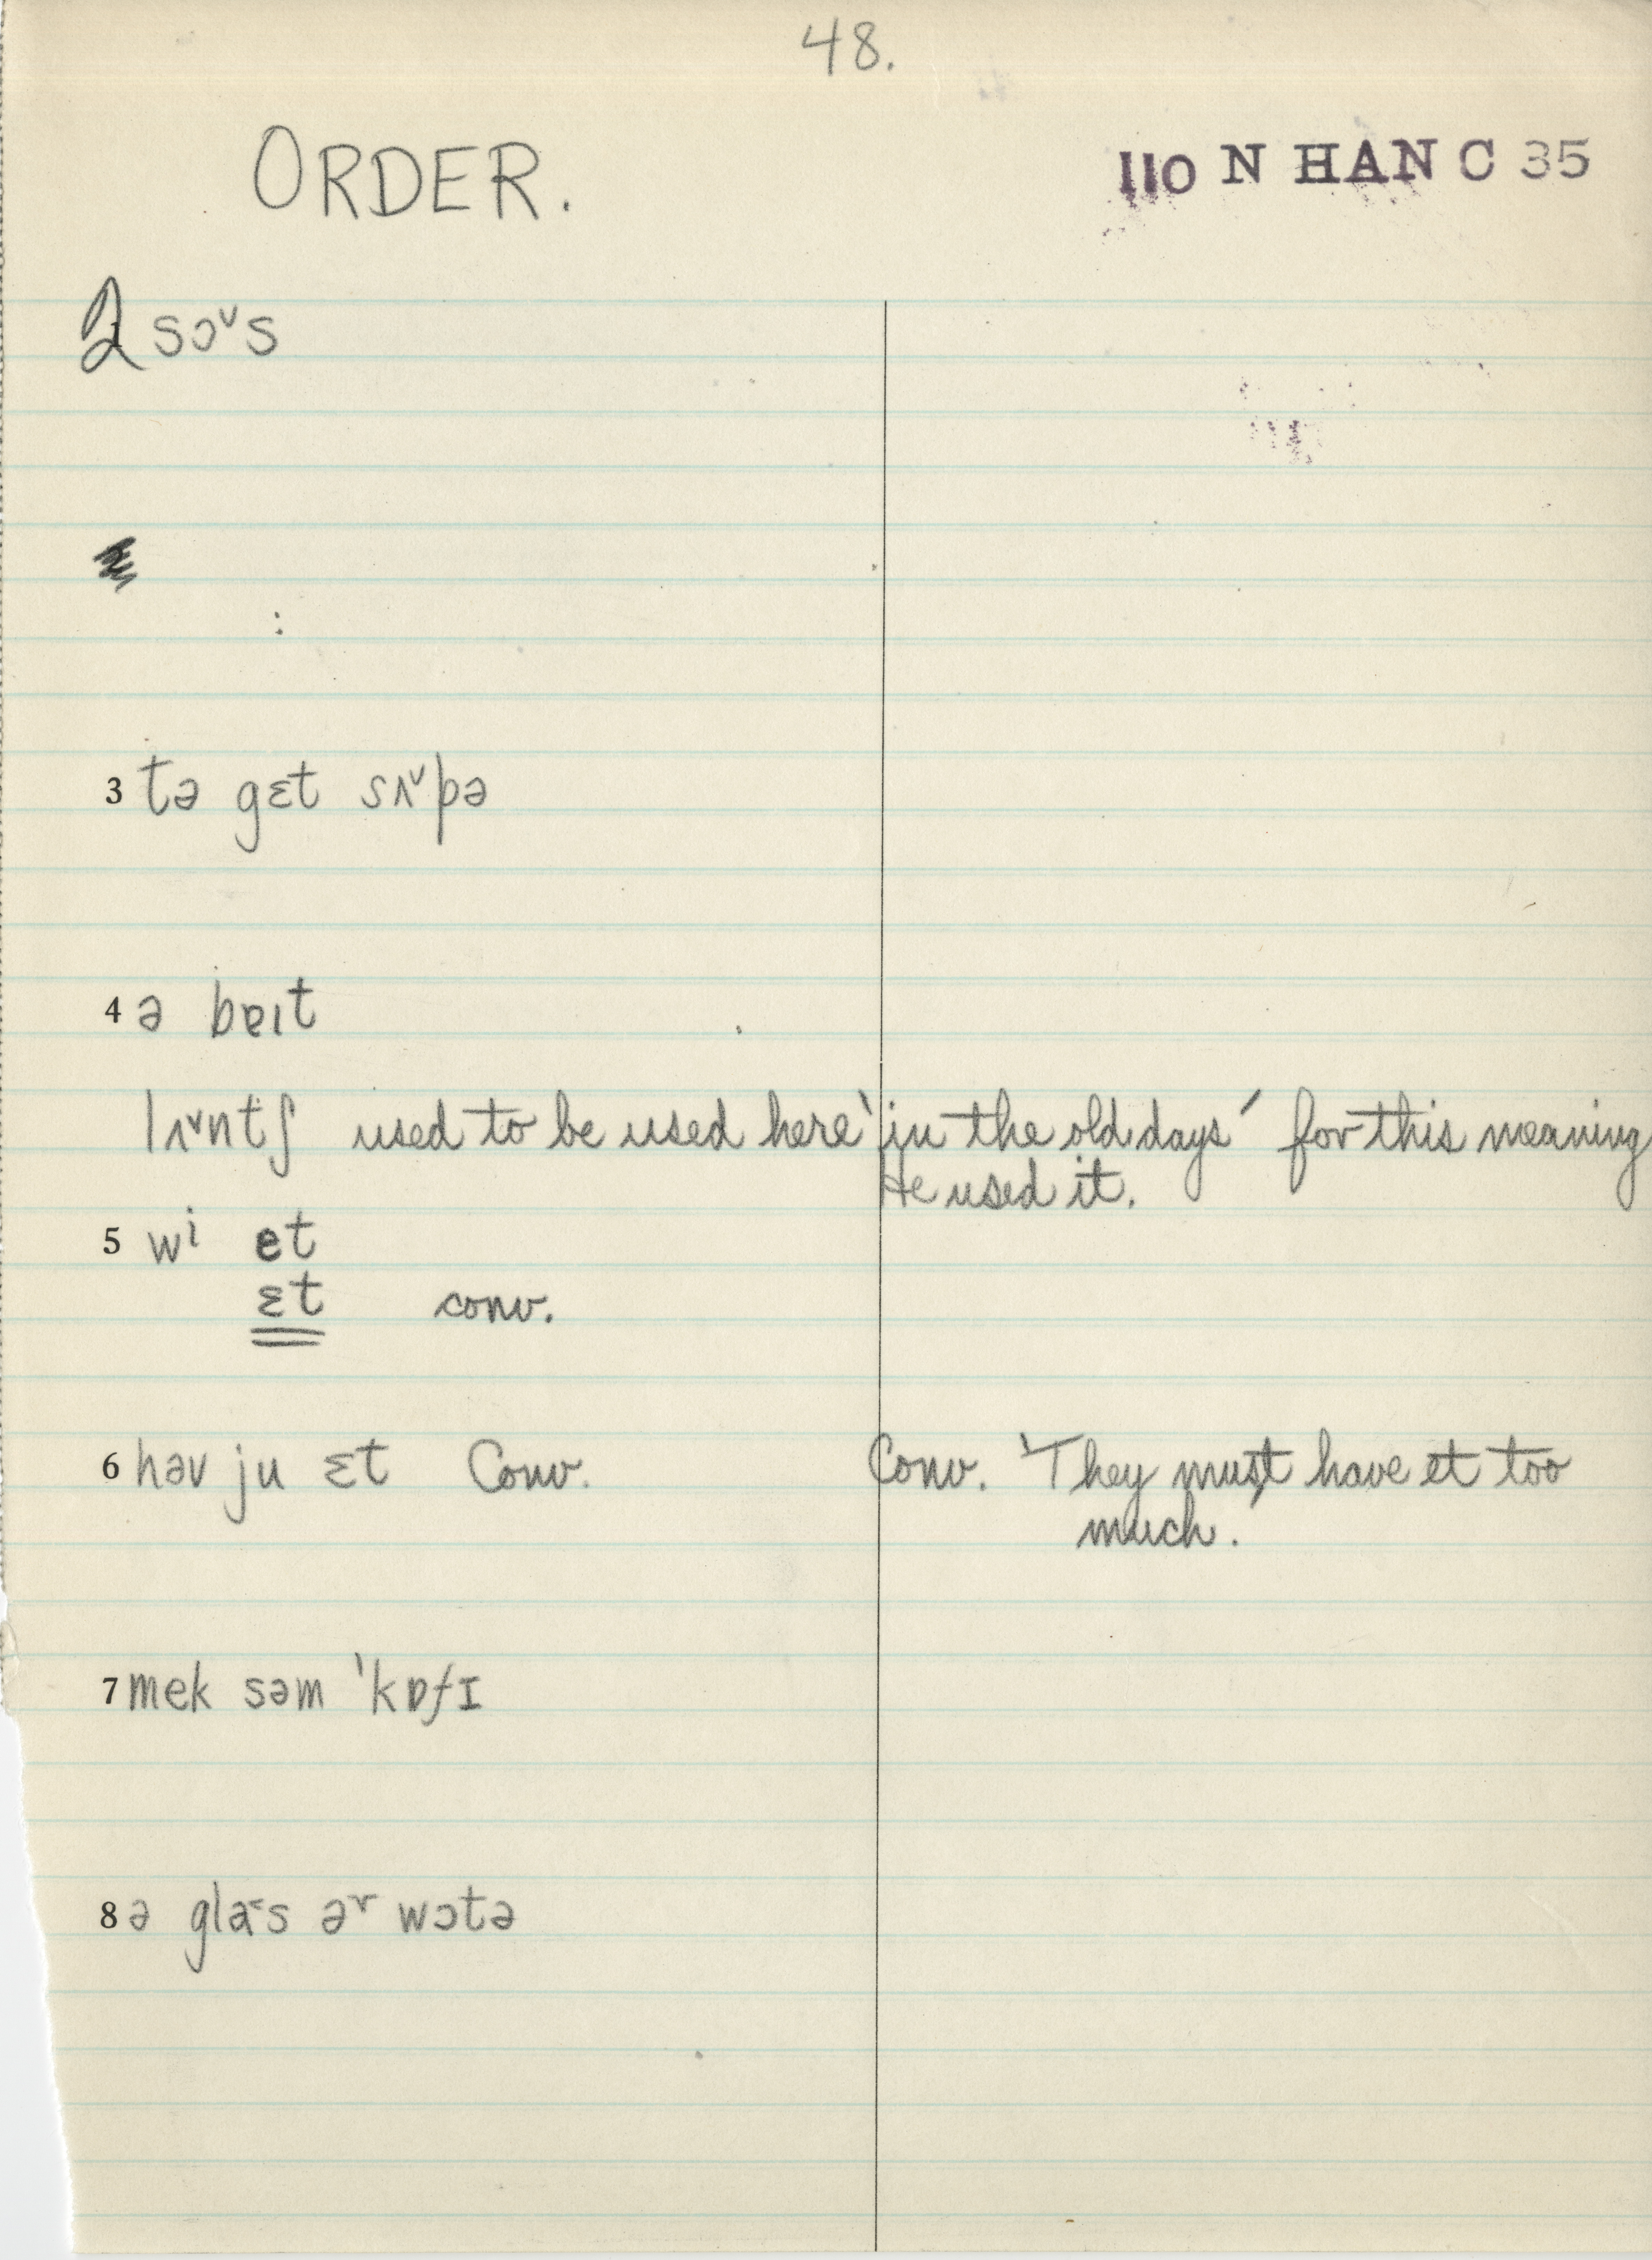 48.
ORDER. 110 N HAN C 35
2 sɔˇs
3 tə gɛt sʌˇpə
4 ə bɐɪt
lʌˇntʃ used to be used here 'in the old days' for this meaning
He used it.
5 wi et
ɛt conv.
6 həv ju ɛt Conv. Conv. 'They must have et too
much.
7 mek səm 'kɒfɪ
8 ə gla˂s ə˞ wɔtə